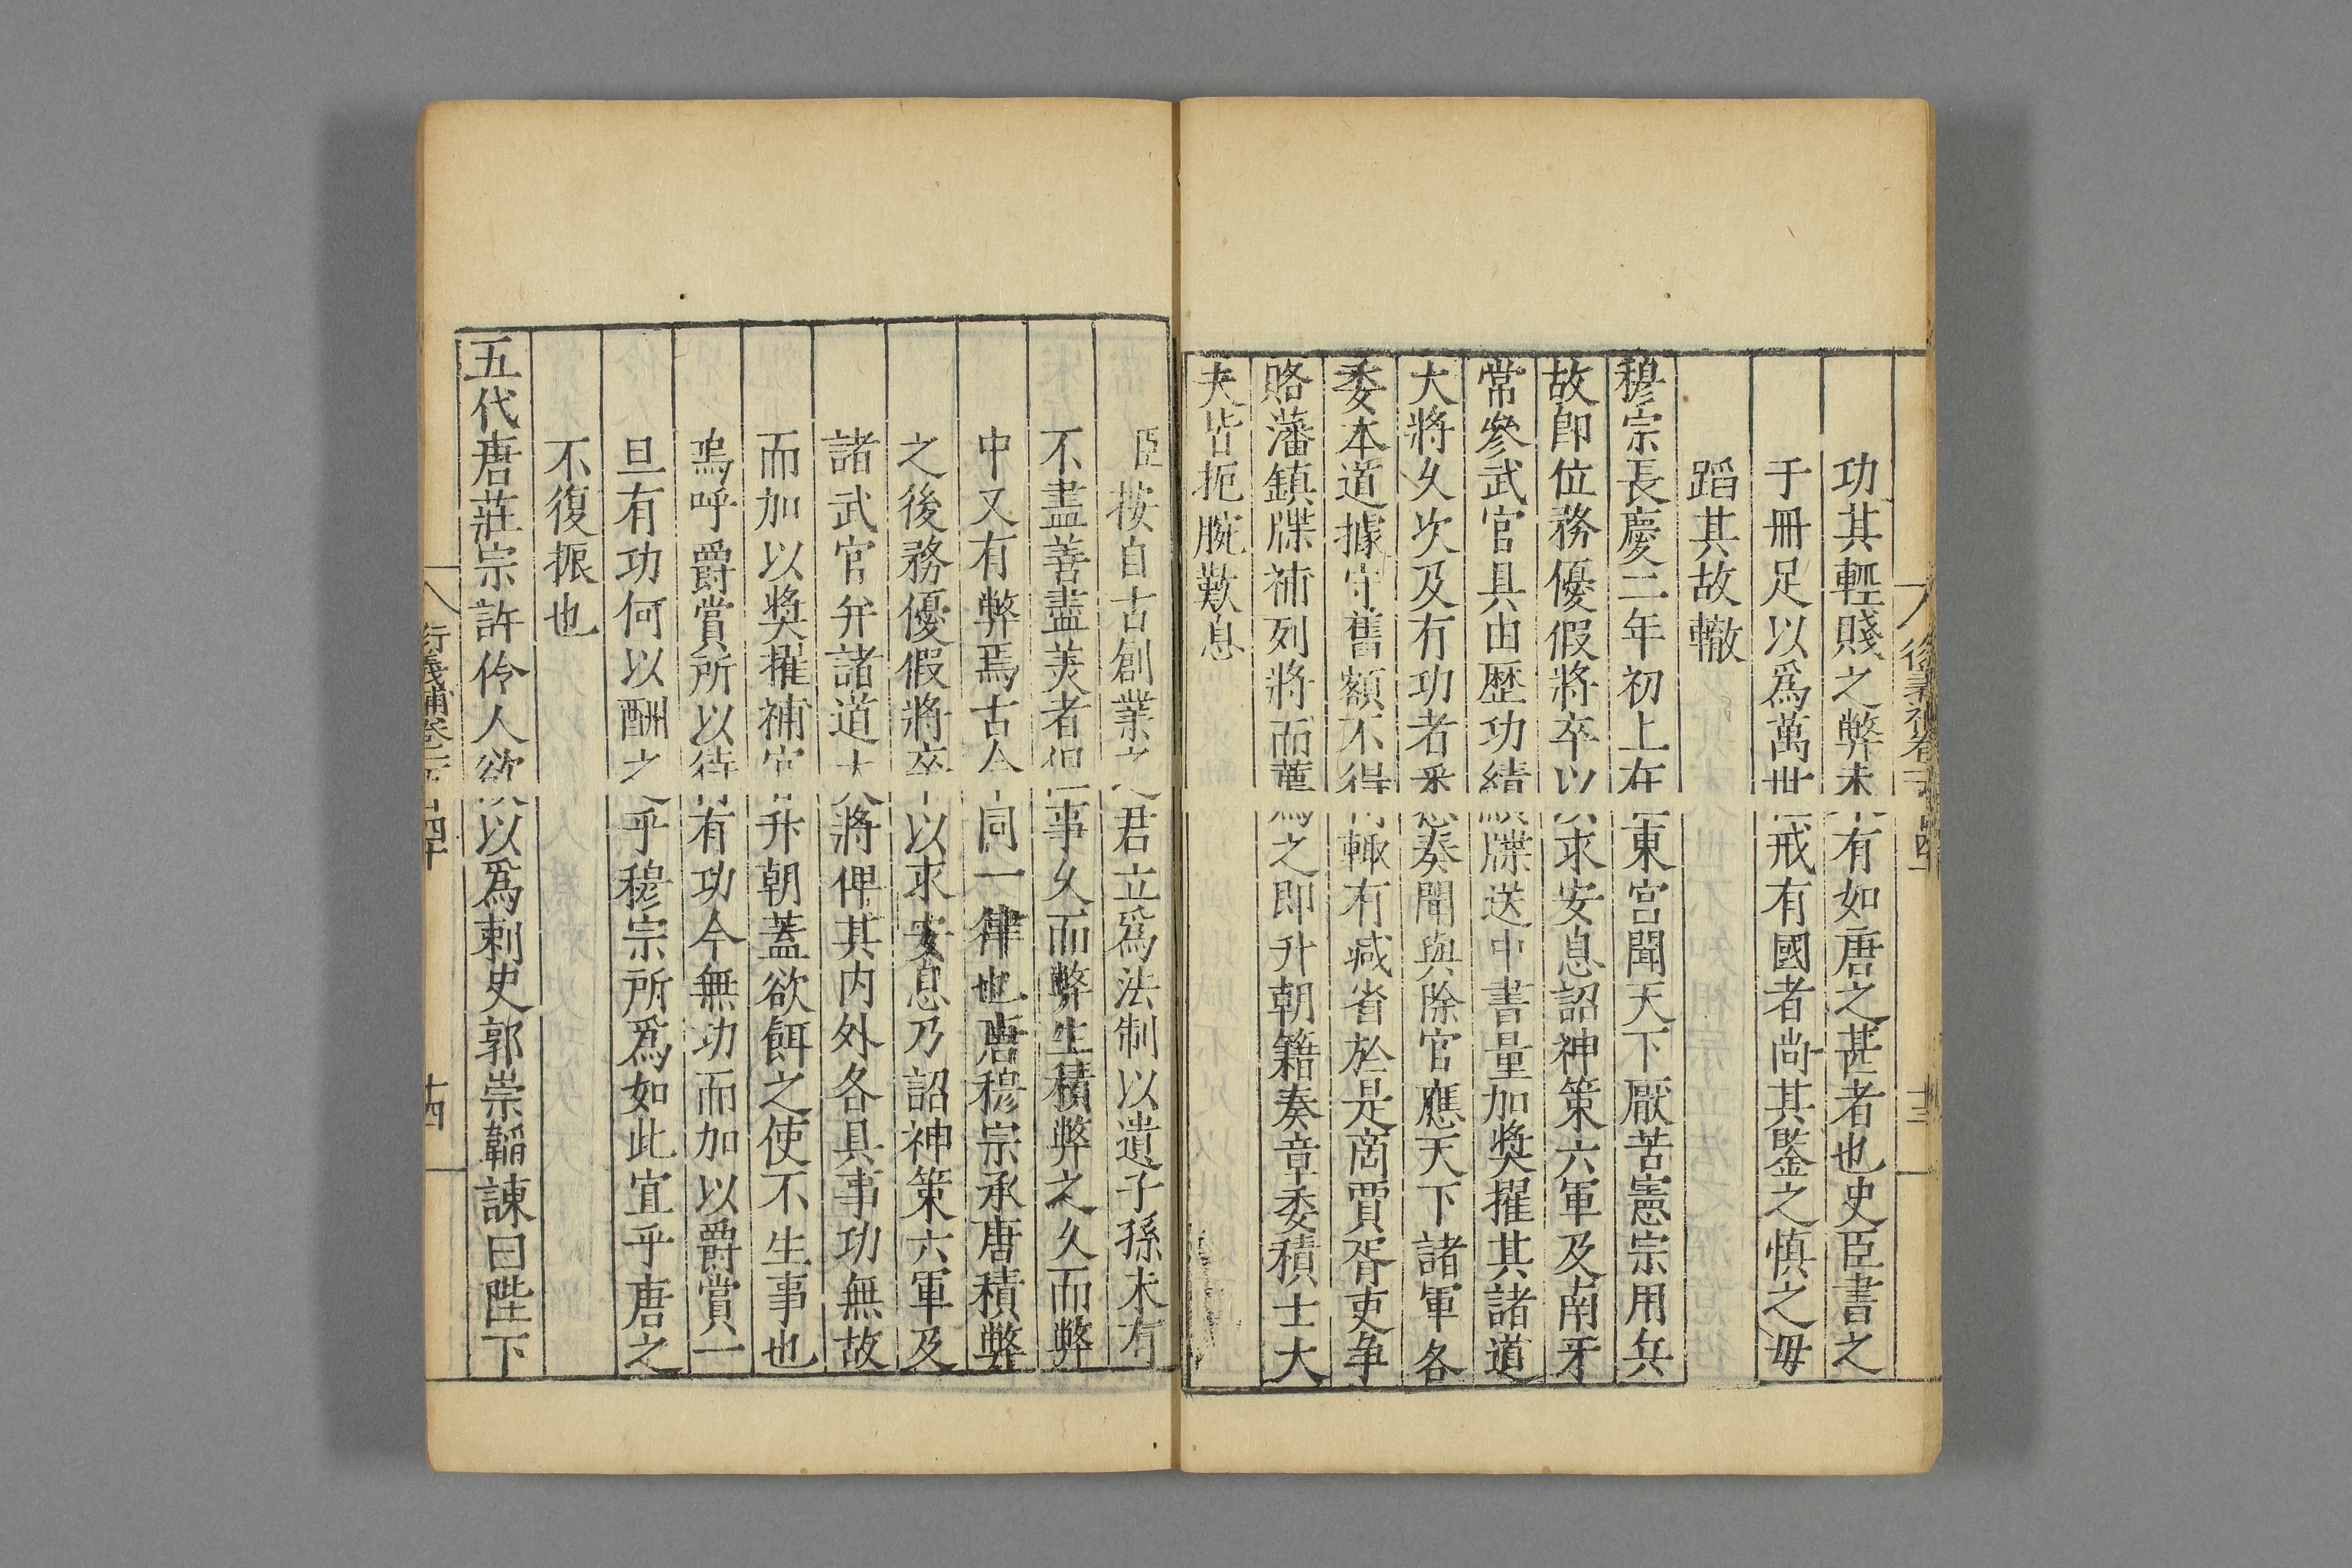 功其輕賤之弊未有如唐之甚者也史臣書之
于冊足以爲萬世戒有國者尚其鑒之慎之毋
蹈其故轍
穆宗長慶二年初上在東宮聞天下厭苦憲宗用兵
故卽位務優假將卒以求安息詔神策六軍及南牙
常參武官具由歷功績牒送中書量加奬擢其諸道
大將久次及有功者悉奏聞與除官應天下諸軍各
委本道據守舊額不得輒有减省於是商賈胥吏爭
賂藩鎮牒補列將而薦爲之即升朝籍奏章委積士大
夫皆扼腕歎息
臣按自古創業之君立爲法制以遺子孫未有
不盡善盡美者但事久而弊生積弊之久而弊
中又有弊焉古今同一律也唐穆宗承唐積弊
之後務優假將卒以求安息乃詔神策六軍及
諸武官并諸道大將俾其内外各具事功無故
而加以奬擢補官升朝蓋欲餌之使不生事也
嗚呼爵賞所以待有功今無功而加以爵賞一
旦有功何以酬之乎穆宗所爲如此宜乎唐之
不復振也
五代唐莊宗許伶人欲以爲刺史郭崇韜諫曰陛下
衍義補卷
十四